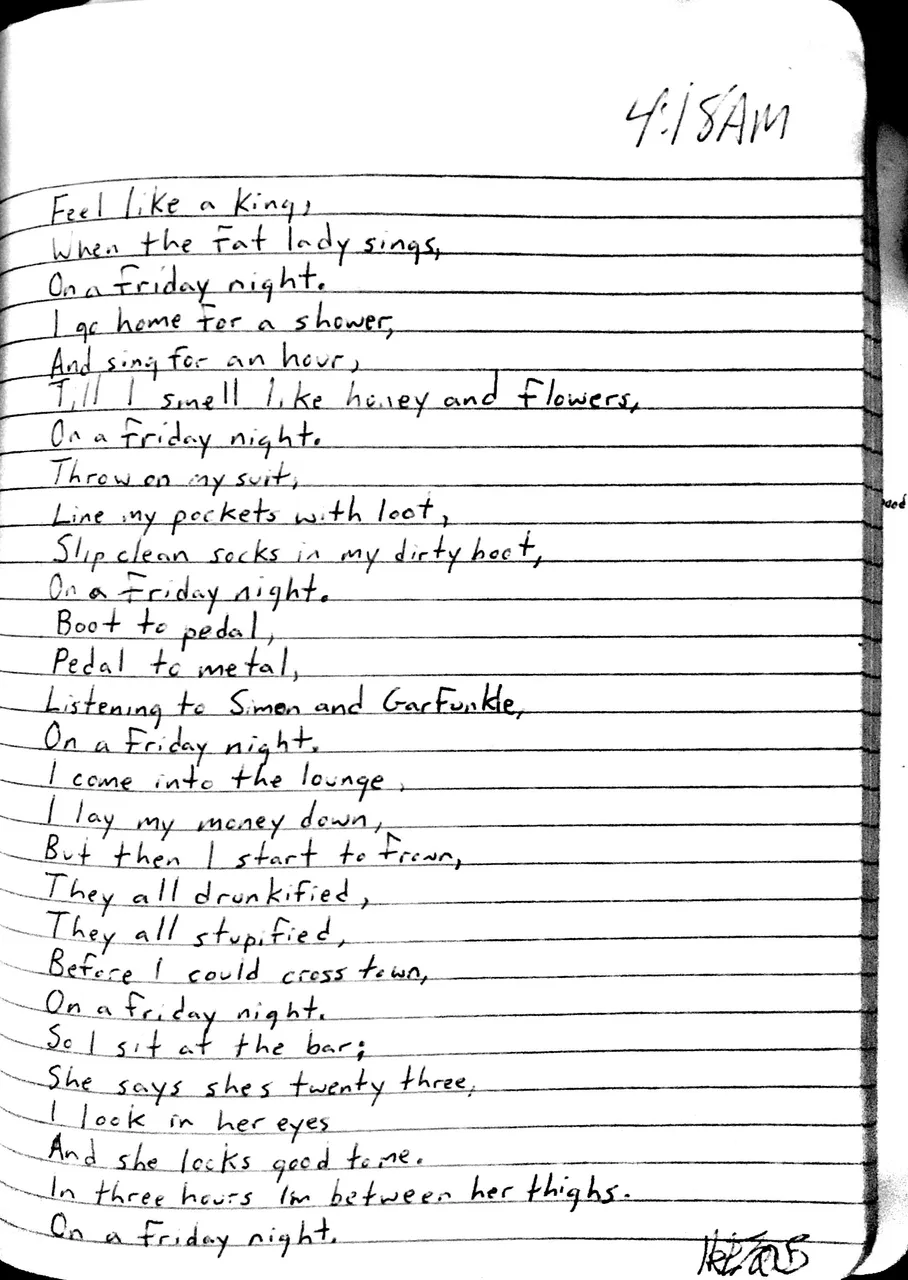 4:18AM
Feel like a king,
When the fat lady sings,
On a Friday night.
I go home for a shower,
And sing for an hour,
Till I smell like honey and flowers,
On a Friday night.
Throw on my suit,
Line my pockets with loot,
Slip clean socks in my dirty boot,
On a Friday night.
Boot to pedal,
Pedal to metal,
Listening to Simon and Garfunkle,
On a Friday night.
I come into the lounge,
I lay my money down,
But then I start to frown,
They all drunkified,
They all stupified,
Before I could cross town,
On a Friday night.
So I sit at the bar;
She says shes twenty three,
I look in her eyes
And she looks good to me.
In three hours Im between her thighs.
On a Friday night.